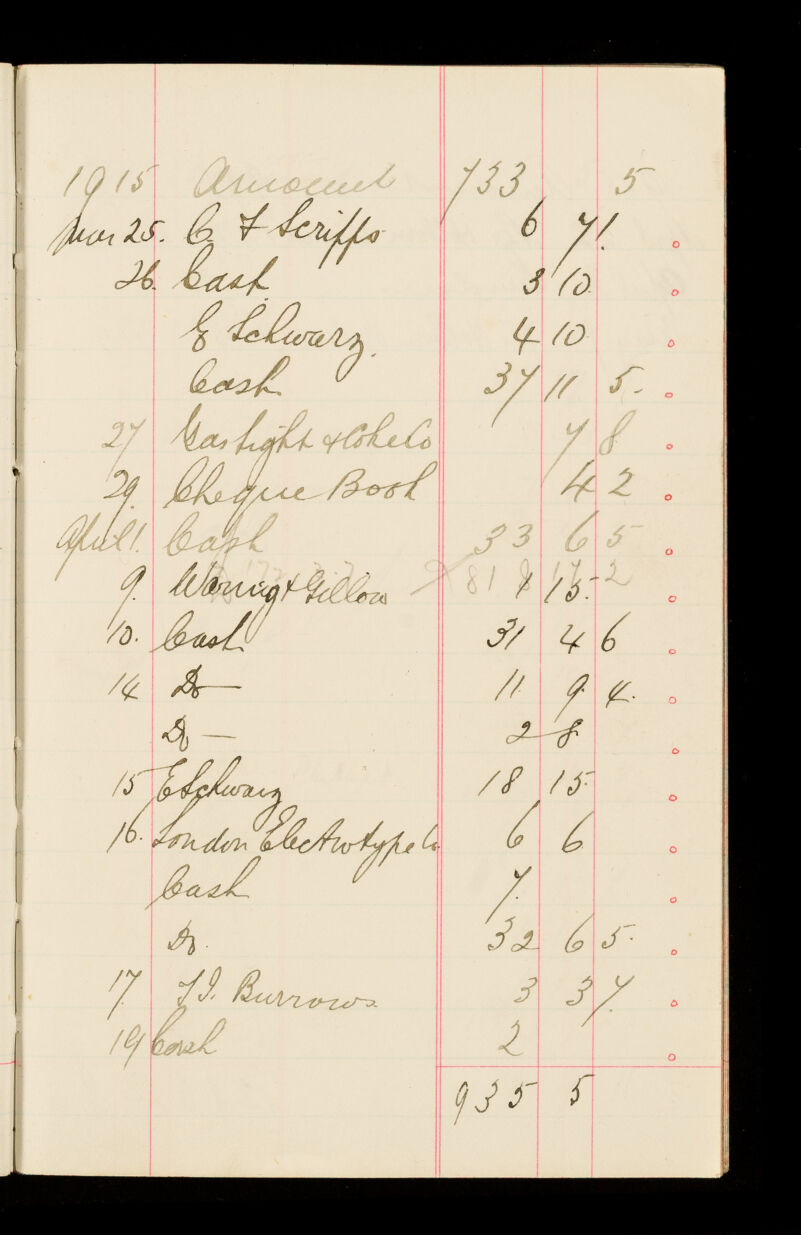 1915 Amount 733 5
Mar 25. C. F Scripps 6 7 1.
26. Cash 3 10
E Schwarz. 4 10
Cash 37 11 5.
27 Gas Light & Coke Co 7 8
29. Cheque Book 4 2
April 1. Cash 33 6 5
9. Waring & Gillow 15.
10. Cash 31 4 6
14 Do — 11 9 4.
Do — 2 8
15 E Schwarz 18 15.
16. London Electrotype Co 6 6
Cash 7.
Do. 32 6 5.
17. F J. Burrows 3 3 7.
19 Cash 2
935 5